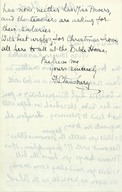 has now, neither has Mrs Moors
and the teacher are asking for
their salaries.
With best wishes for Christmas from
all here to all at the Bible House,
Believe me
yours sincerely,